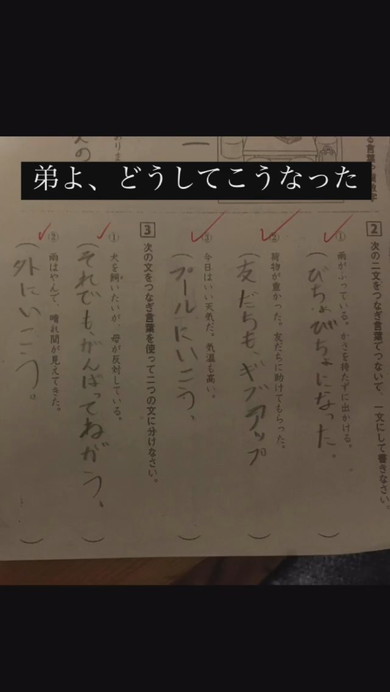 弟よ、どうしてこうなった
2 次の二文をつなぎ言葉でつないで、一文にして書きなさい。
① 雨がふっている。かさを持たずに出かける。
(びちょびちょになった。)
② 荷物が重かった。友だちに助けてもらった。
(友だちも、ギブアップ)
③ 今日はいい天気だ。気温も高い。
(プールにいこう。)
3 次の文をつなぎ言葉を使って二つの文に分けなさい。
① 犬を飼いたいが、母が反対している。
(それでも、がんばってねがう、)
② 雨はやんで、晴れ間が見えてきた。
(外にいこう。)